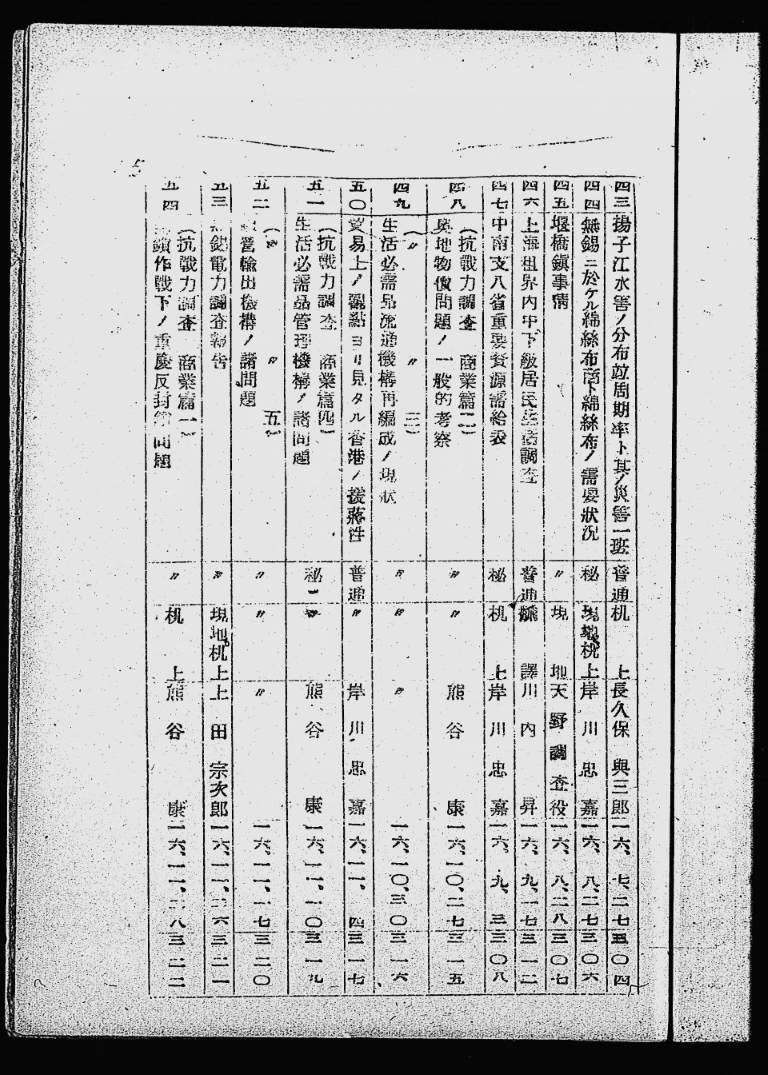 四三 揚子江水害ノ分布竝周期率ト其ノ災害一班 普通 机上 長久保與三郎 一六、七、二七 五〇四
四四 無錫ニ於ケル綿絲布商ト綿絲布ノ需要狀況 秘 現地机上 岸川忠嘉 一六、八、二七 三〇六
四五 堰橋鎭事情 〃 現地 天野調査役 一六、八、二八 三〇七
四六 上海租界內中下級居民生活調査 普通 飜譯 川內昇 一六、九、一七 三一二
四七 中南支八省重要資源需給表 秘 机上 岸川忠嘉 一六、九、三 三〇八
四八 (抗戰力調査 商業篇二)
奧地物價問題ノ一般的考察 〃 〃 熊谷康 一六、一〇、二七 三一五
四九 (〃 〃 三)
生活必需品流通機構再編成ノ現狀 〃 〃 〃 一六、一〇、三〇 三一六
五〇 貿易上ノ觀點ヨリ見タル香港ノ援蔣性 普通 〃 岸川忠嘉 一六、一一、四 三一七
五一 (抗戰力調査 商業篇四)
生活必需品管理機構ノ諸問題 秘 〃 熊谷康 一六、一一、一〇 三一九
五二 (〃 〃 五)
營輸出機構ノ諸問題 〃 〃 〃 一六、一一、一七 三二〇
五三 錫電力調査報告 〃 現地机上 上田宗次郎 一六、一一、二六 三二一
五四 (抗戰力調査 商業篇一)
鎖作戰下ノ重慶反封鎖問題 〃 机上 熊谷康 一六、一一、二八 三二二